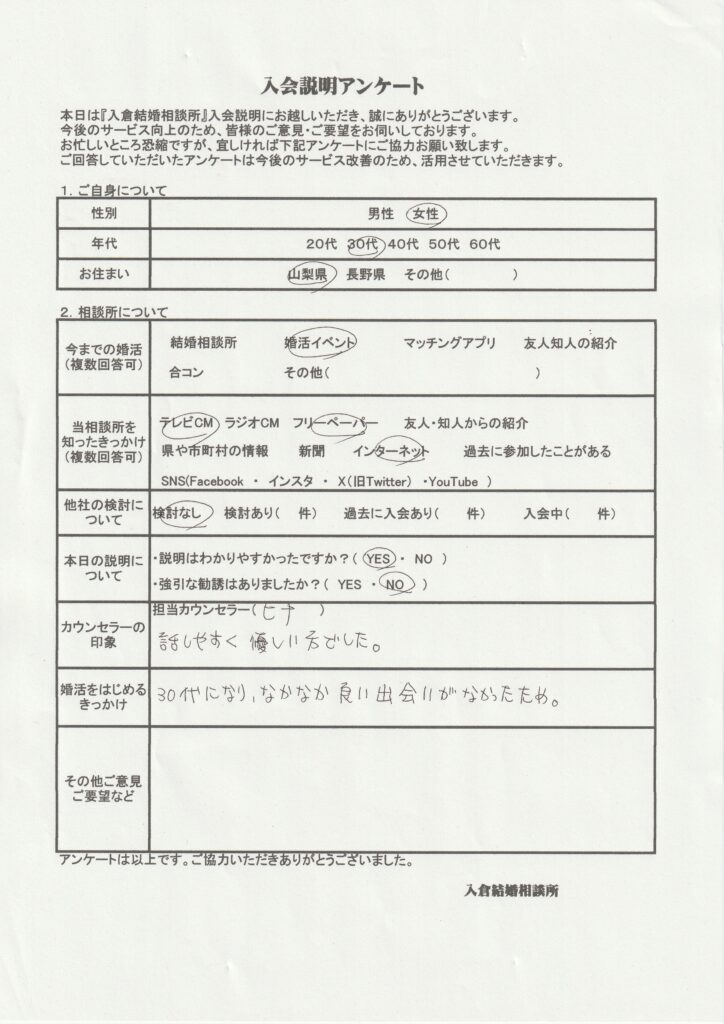 入会説明アンケート
本日は『入倉結婚相談所』入会説明にお越しいただき、誠にありがとうございます。
今後のサービス向上のため、皆様のご意見・ご要望をお伺いしております。
お忙しいところ恐縮ですが、宜しければ下記アンケートにご協力お願い致します。
ご回答していただいたアンケートは今後のサービス改善のため、活用させていただきます。
1. ご自身について
性別 男性 女性
年代 20代 30代 40代 50代 60代
お住まい 山梨県 長野県 その他( )
2. 相談所について
今までの婚活
(複数回答可)
結婚相談所 婚活イベント マッチングアプリ 友人知人の紹介
合コン その他( )
当相談所を
知ったきっかけ
(複数回答可)
テレビCM ラジオCM フリーペーパー 友人・知人からの紹介
県や市町村の情報 新聞 インターネット 過去に参加したことがある
SNS(Facebook ・ インスタ ・ X(旧Twitter) ・YouTube )
他社の検討に
ついて
検討なし 検討あり( 件) 過去に入会あり( 件) 入会中( 件)
本日の説明に
ついて
・説明はわかりやすかったですか?( YES ・ NO )
・強引な勧誘はありましたか?( YES ・ NO )
カウンセラーの
印象
担当カウンセラー( ヒナ )
話しやすく優しい方でした。
婚活をはじめる
きっかけ
30代になり、なかなか良い出会いがなかったため。
その他ご意見
ご要望など
アンケートは以上です。ご協力いただきありがとうございました。
入倉結婚相談所